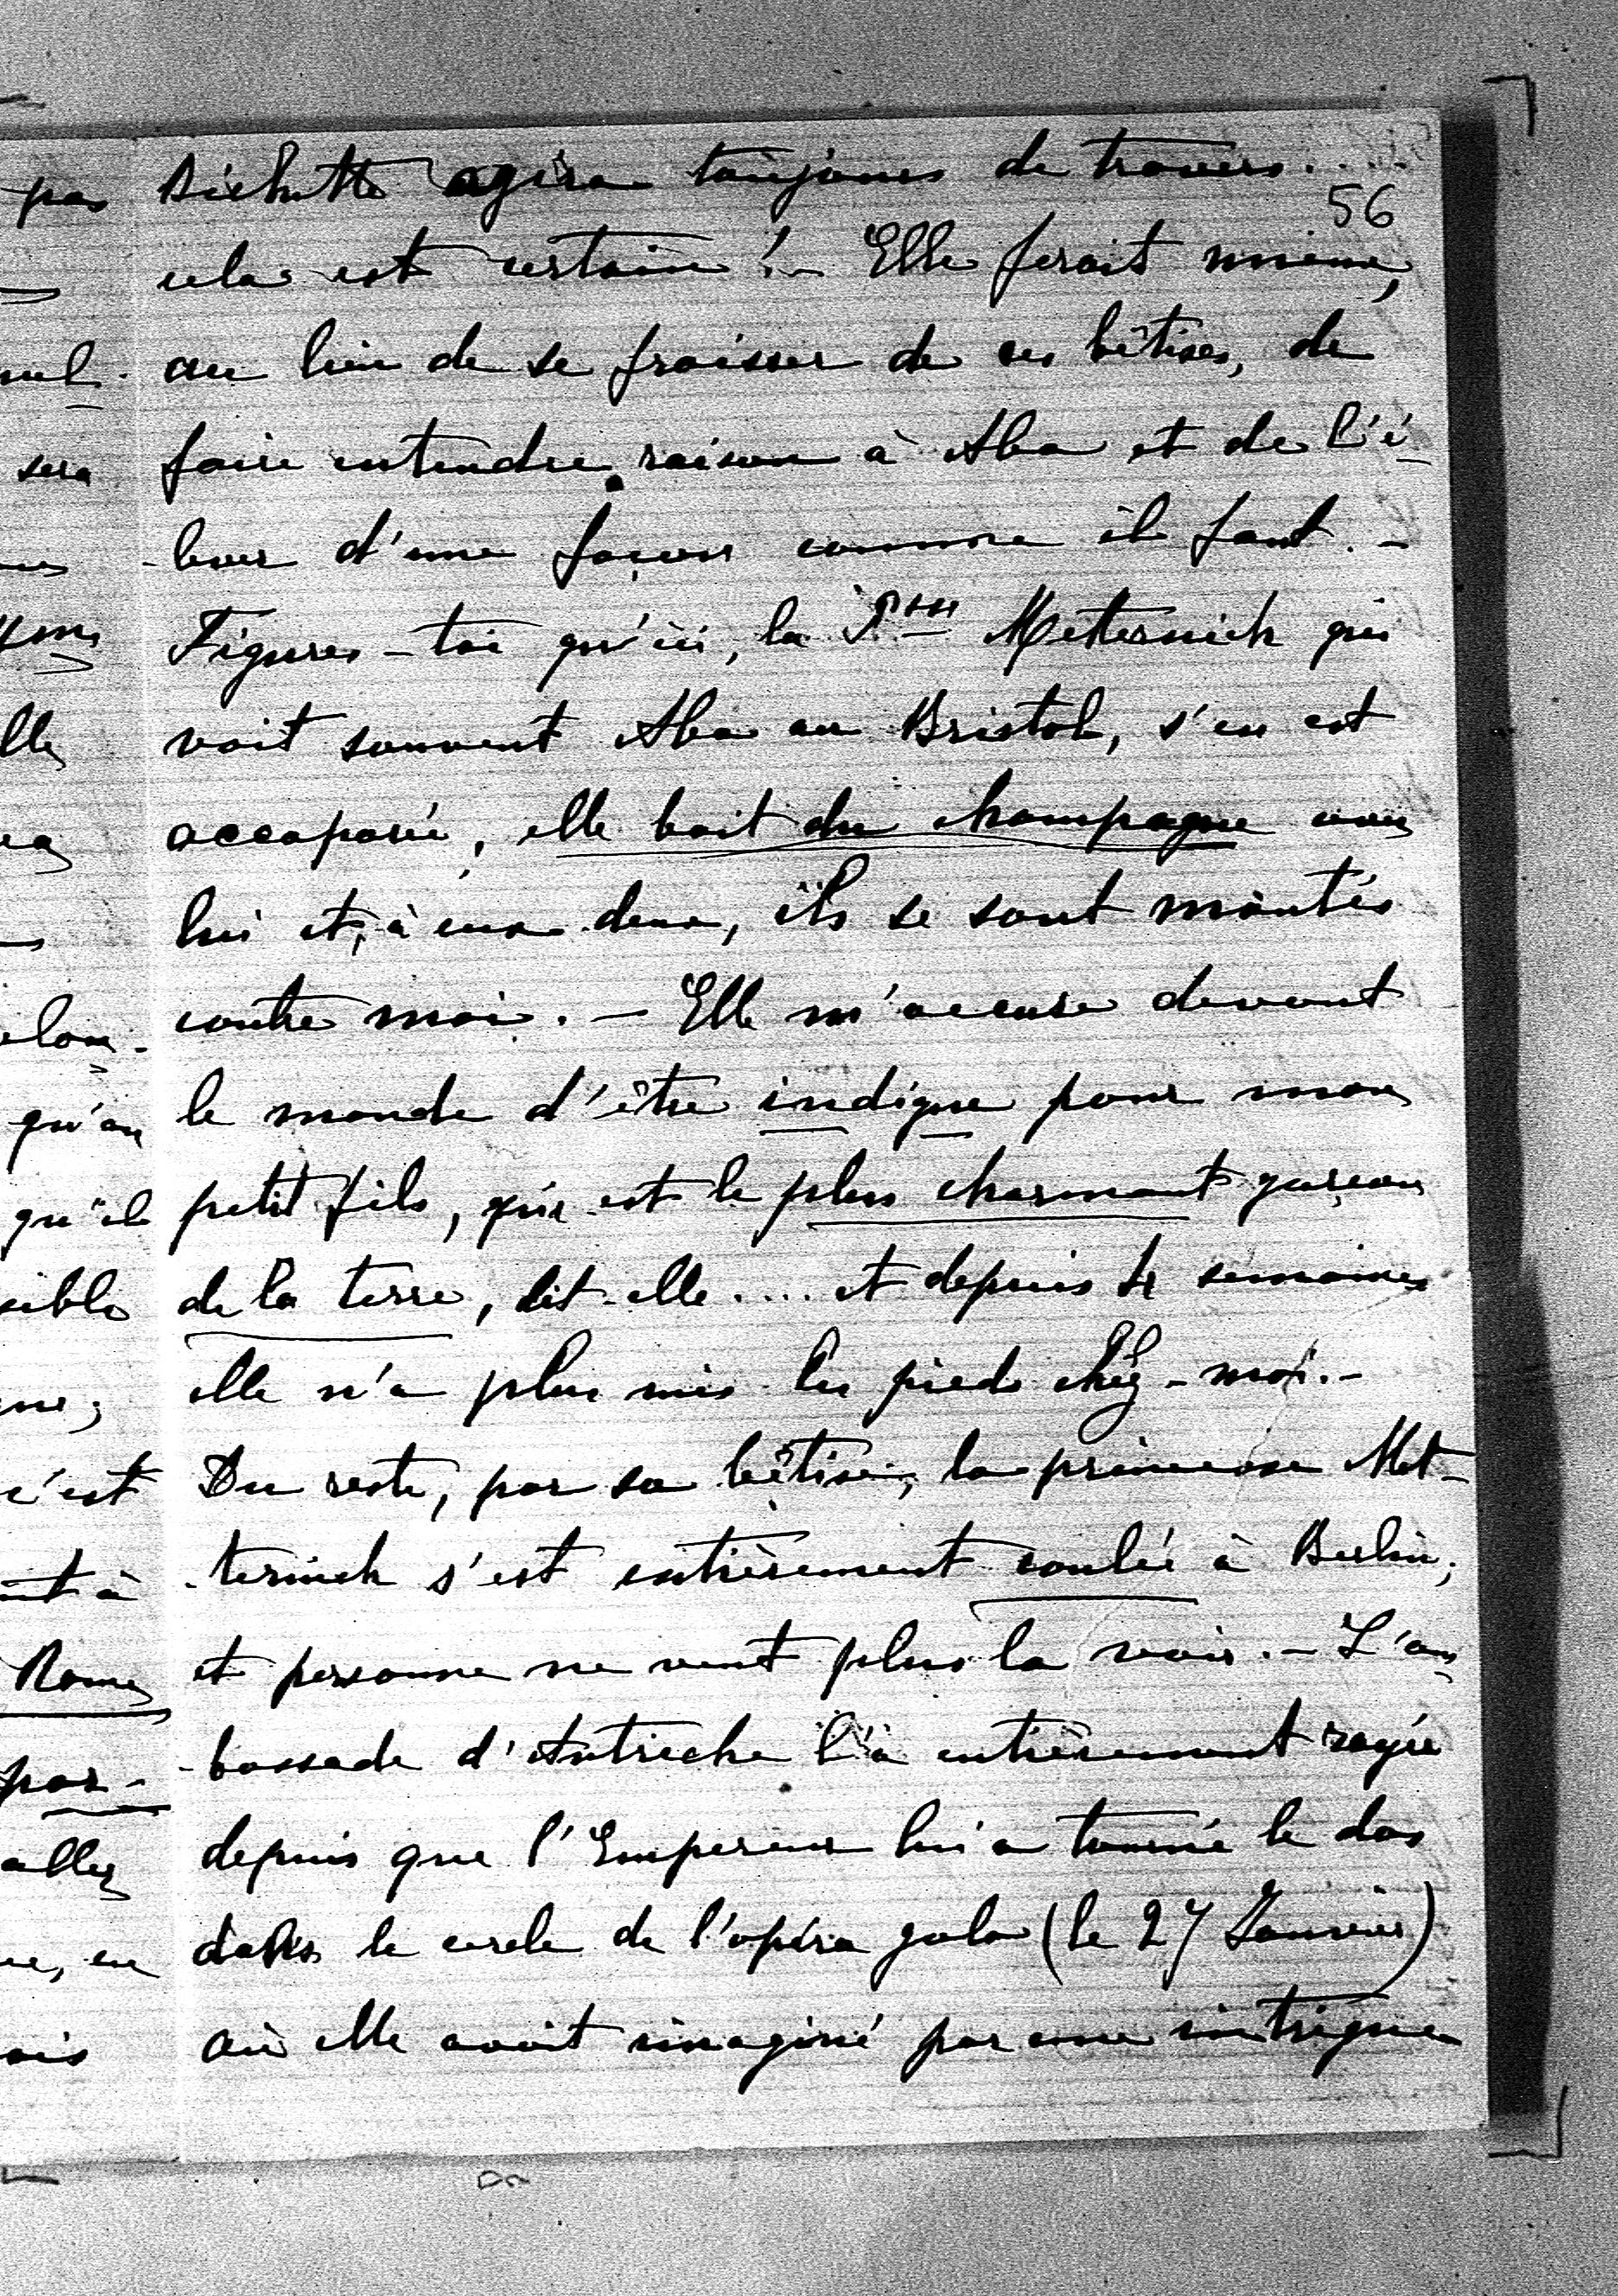 Bichette agira toujours de travers....
56
cela est certain !- Elle ferait mieux,
au lieu de se froisser de ces bêtises, de
faire entendre raison à Aba et de l'é-
-lever d'une façon comme il faut.-
Figures-toi qu'ici, la Psse Metternich qui
voit souvent Aba au Bristol, s'en est
accaparée, elle boit du champagne avec
lui et, à eux deux, ils se sont montés
contre moi.- Elle m'accuse devant
le monde d'être indigne pour mon
petit fils, qui est le plus charmant garçon
de la terre, dit-elle.... et depuis semaines
elle n'a plus mis les pieds chez-moi.-
Du reste, par sa bêtise, la princesse Met-
-ternich s'est entièrement coulée à Berlin,
et personne ne veut plus la voir.- L'am
-bassade d'Autriche l'a entièrement rayée
depuis que l'Empereur lui a tourné le dos
dans le cercle de l'opéra gala (le 27 Janvier)
où elle avait imaginé par une intrigue
pas
sera
elle
qu'on
qu'il
c'est
Rome
par-
aller